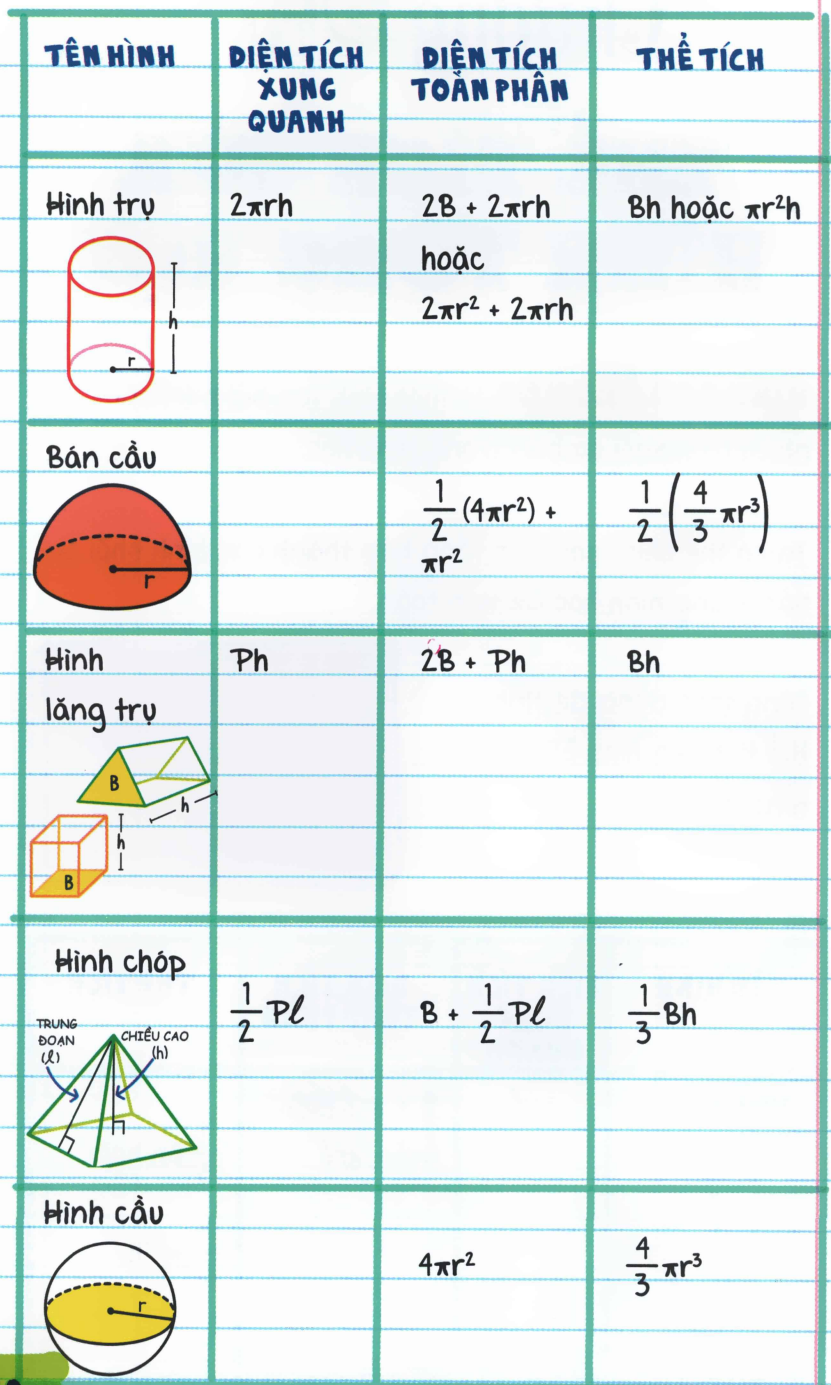 TÊN HÌNH
DIỆN TÍCH
XUNG
QUANH
DIỆN TÍCH
TOÀN PHẦN
THỂ TÍCH
Hình trụ
h
r
2πrh
2B + 2πrh
hoặc
2πr² + 2πrh
Bh hoặc πr²h
Bán cầu
r
1/2 (4πr²) +
πr²
1/2 (4/3 πr³)
Hình
lăng trụ
B
h
h
B
Ph
2B + Ph
Bh
Hình chóp
TRUNG
ĐOẠN
(ℓ)
CHIỀU CAO
(h)
1/2 Pℓ
B + 1/2 Pℓ
1/3 Bh
Hình cầu
r
4πr²
4/3 πr³